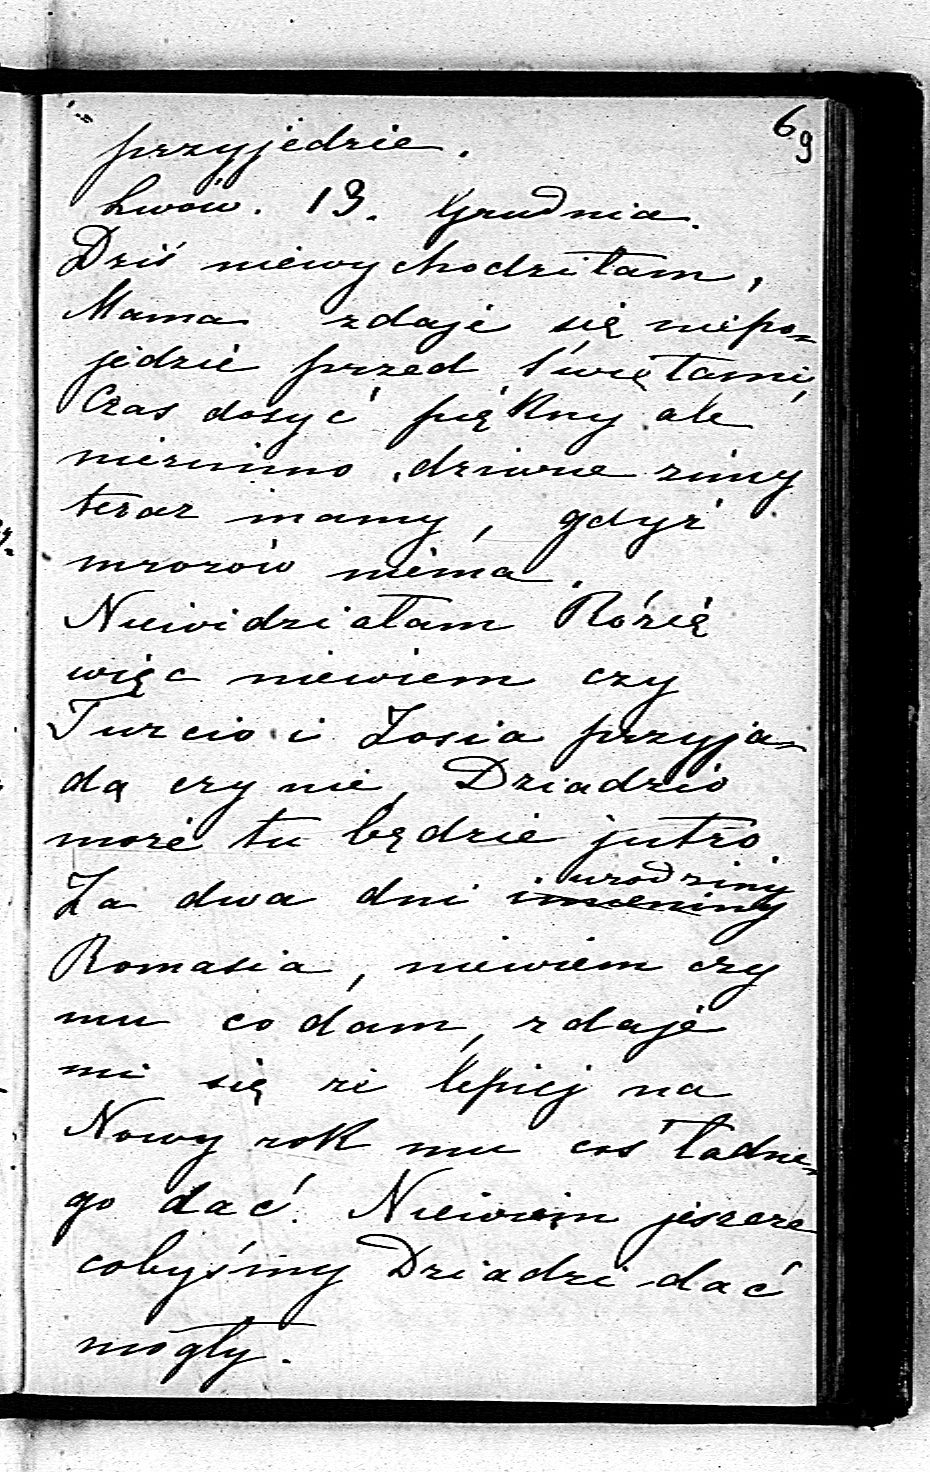 69
przyjedzie.
Lwów. 13. Grudnia.
Dziś niewychodziłam,
Mama zdaje się niepo=
jedzie przed Świętami,
Czas dosyć piękny ale
niezimno, dziwne zimy
teraz mamy, gdyż
mrozów niema.
Niewidziałam Rózię
więc niewiem czy
Turcio i Zosia przyja=
dą czy nie, Dziadzio
może tu będzie jutro
Za dwa dni imieniny urodziny
Romasia, niewiem czy
mu co dam, zdaje
mi się że lepiej na
Nowy rok mu coś ładne=
go dać. Niewiem jeszcze
cobyśmy Dziadzi dać
mogły.